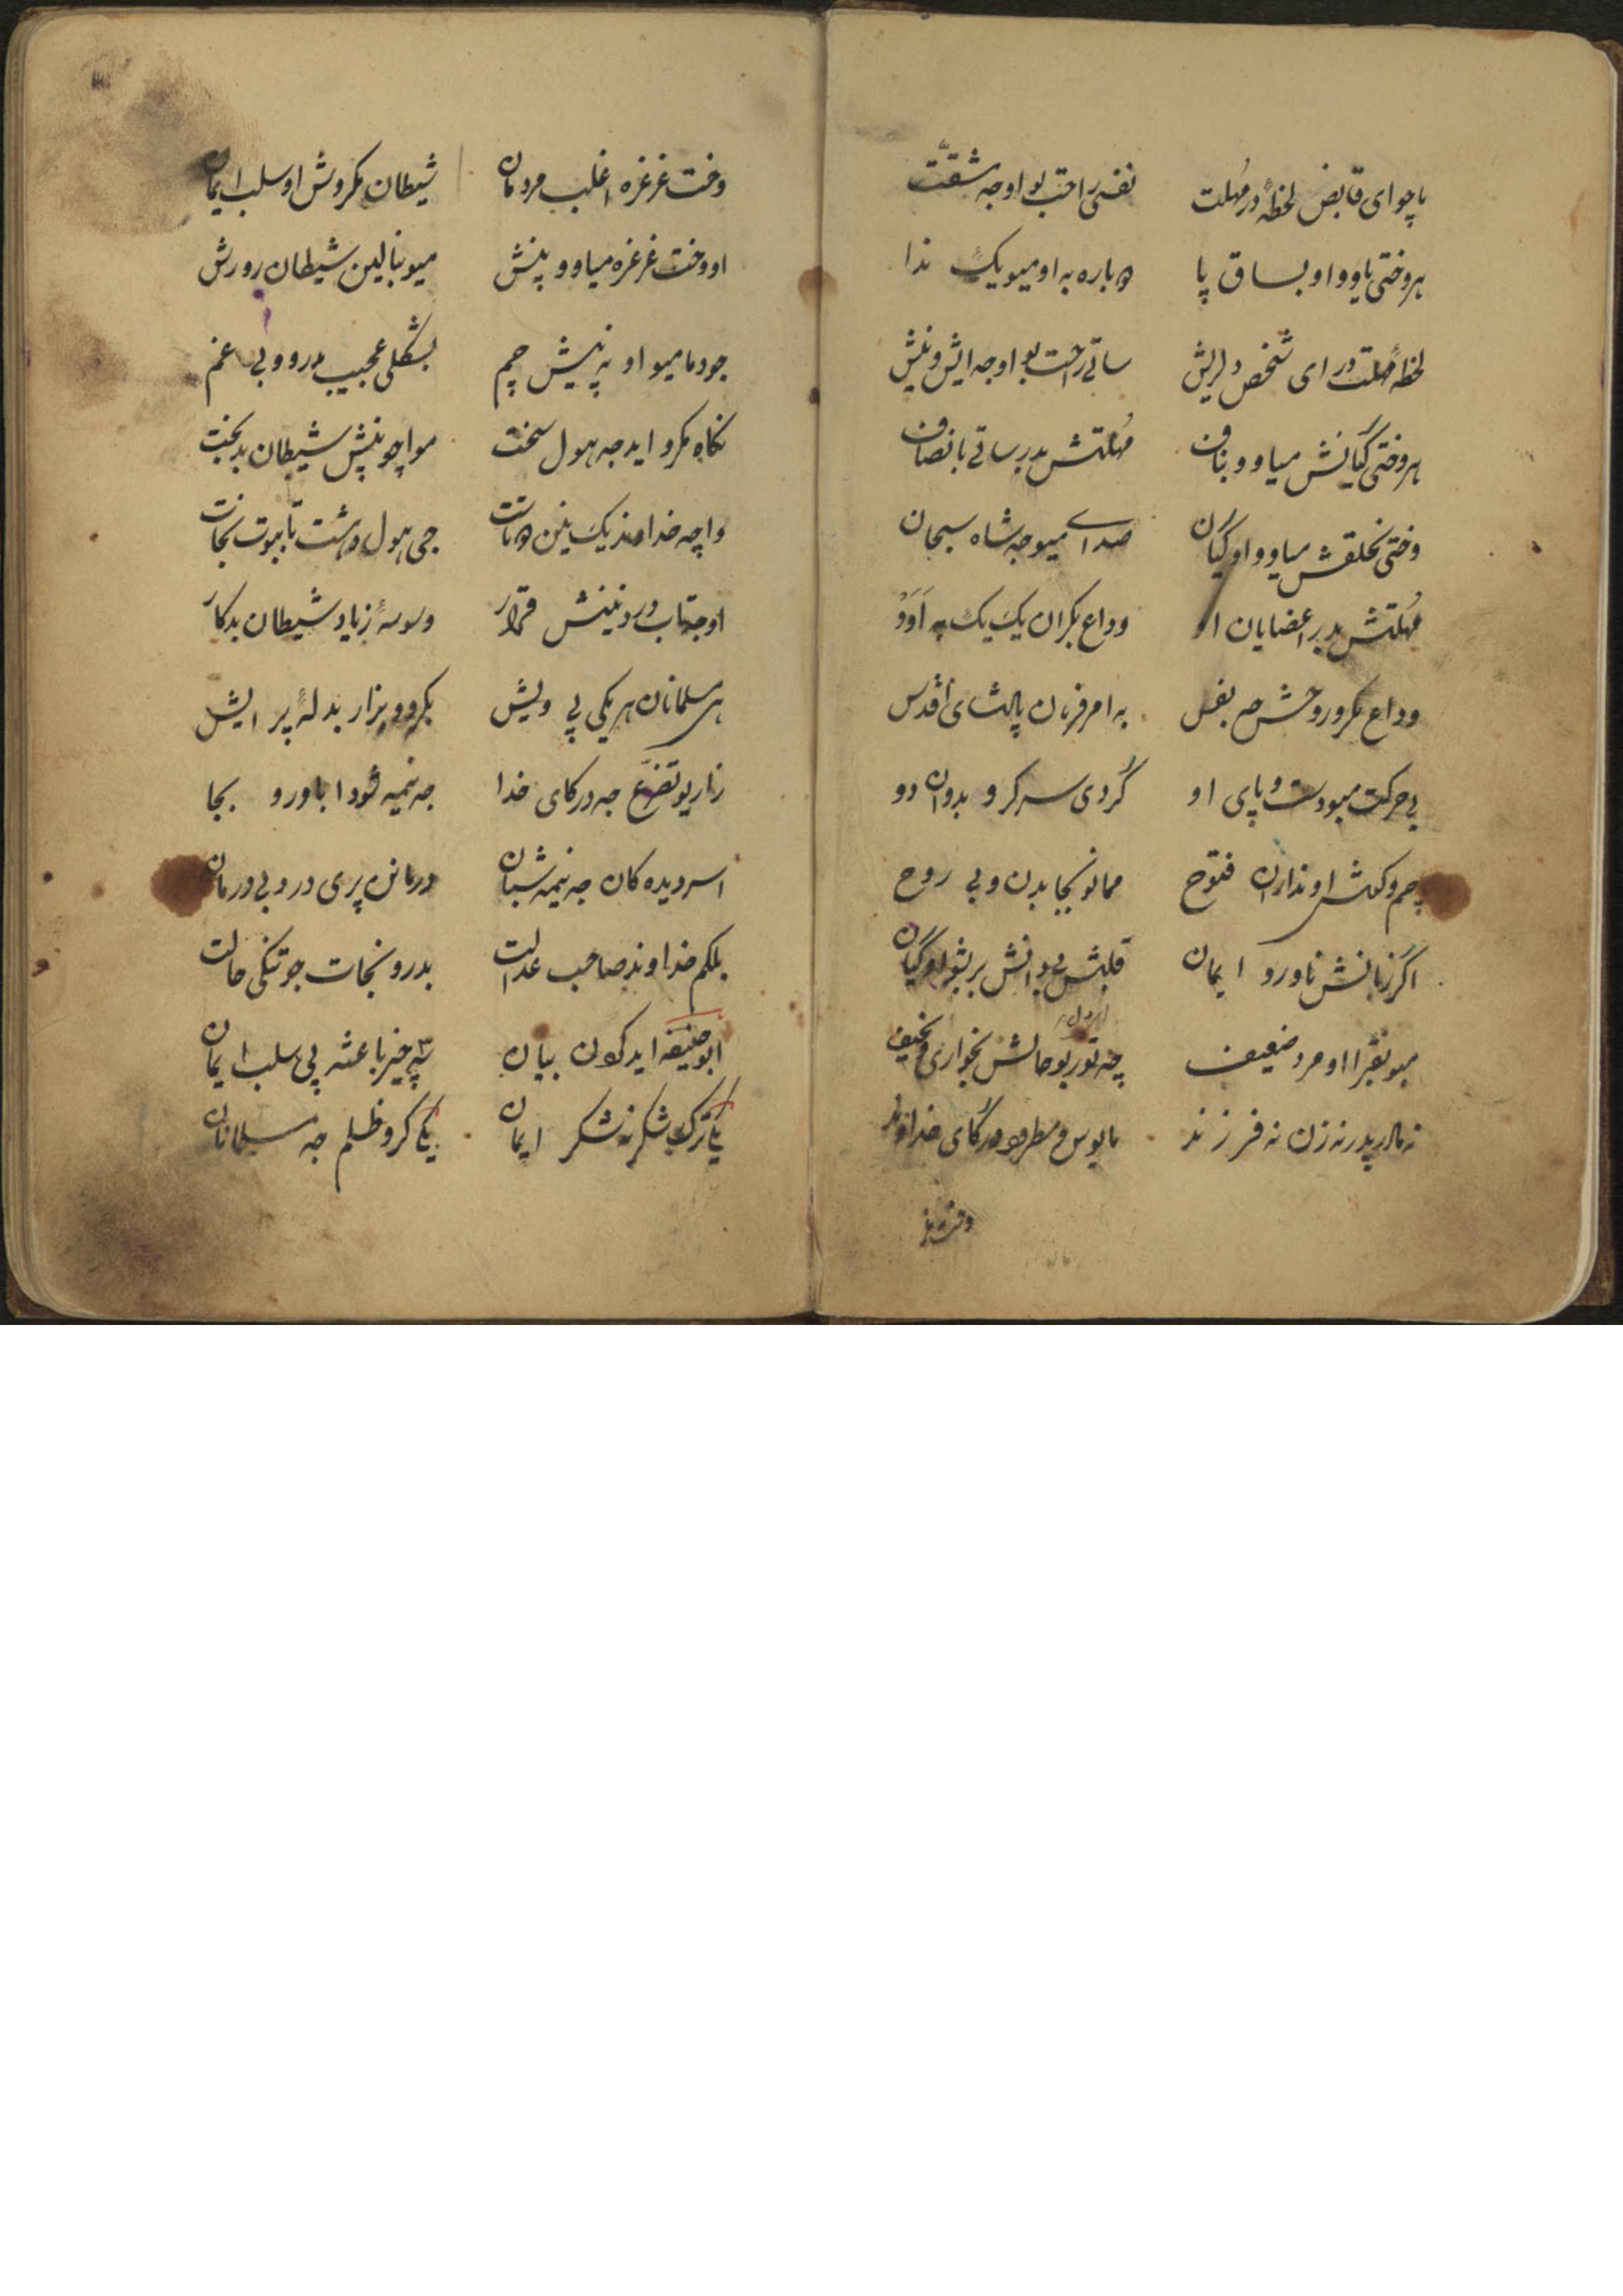 باچو ای قابض لحظهٔ در مُهلت نفسی راحت بو او جه مشقّت
هروختی یاوو او بساق پا دوباره به او میو یک ندا
لحظهٔ مُهلت در ای شخص دلریش ساتی راحت بو او جه ایش و نیش
هروختی گیانش میاوو بناف مُهلتش بدر ساتی بانصاف
وختی بحلقش میاوو او گیان صدایی میو جه شاه سبحان
مُهلتش بدر اعضایان او وداع بکران یک یک به اَوَوْ
وداع مکرو روحش جه نفس به امر فرمان پادشای اقدس
بی حرکت میو دست و پای او گُردی سر کرو بدوان دو
چم و گوش او ندارن فتوح ممانو بجا بدن و بی روح
اگر زبانش ناورو ایمان قلبش بی دانش بر بشو او گیان
میو بقبرا او مرد ضعیف چه تور بو حالش بخواری و نحیف
نه مادر پدر نه زن نه فرزند مایوس و مطرود درگای خداوند
وخت غرغره
وخت غرغره اغلب مردمان شیطان مکروش او سلب ایمان
او وخت غرغره میاوو پنش میو ببالین شیطان رورش
جودما میو او نه پیش چم بشکلی عجیب درو و بی غم
نگاه مکرو اید جه هول سخت مواچو پنش شیطان بدبخت
واچه خدا منزیک نین دمانت جی هول دهشت تا بوت نجات
او جه تاب درد نینش قرار وسوسهٔ زیاد شیطان بدکار
هی مسلمانان هر یکی پی ویش بکروو یزار بد لهٔ پر ایش
زاریو تضرّع جه درگای خدا جه نیمه شودا باورو بجا
اسر دیده کان جه نیمه شبان درمانن پری درد بی درمان
بلکم خداوند صاحب عدالت بدرو نجات جو تنگی حالت
ابوحنیفه اید کردن بیان سه چیز باعثه پی سلب ایمان
یکی ترک شکر نه شکر ایمان یکی کرو ظلم جه مسلمانان